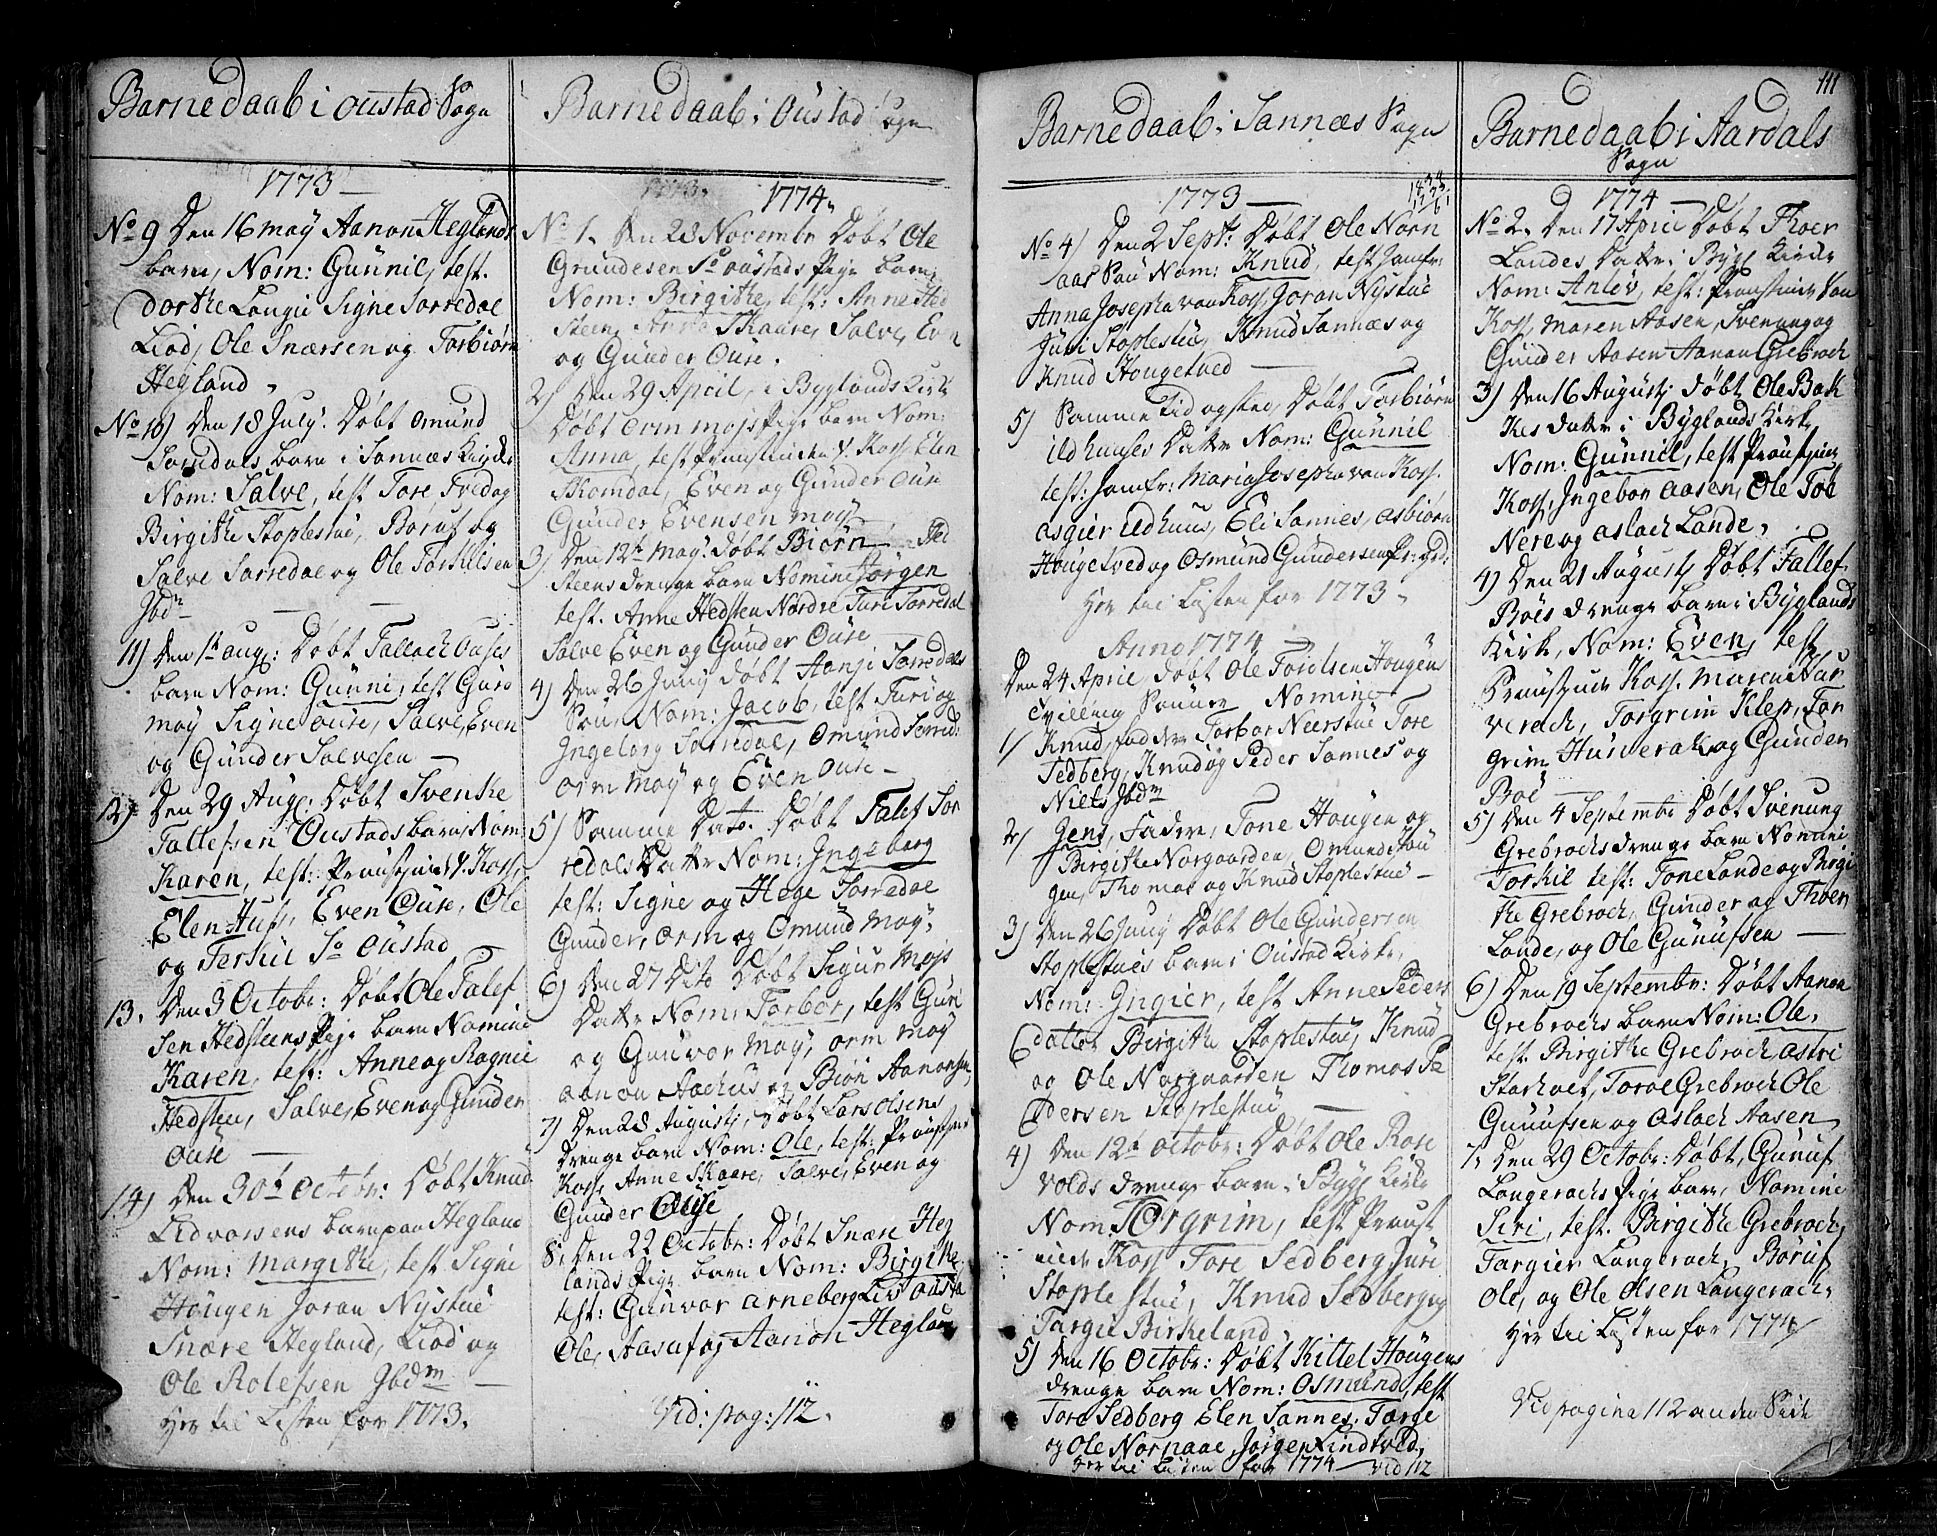 Barnedaab i Oustad Sogn
1773 —
No 9 Den 16 may Aanon Heglands
barn, Nom: Gunnil, test.
Dorthe Signe Sorredal
Liod, Ole Snærsen og Torbiørn
Hegland.
No 10) Den 18 July: Døbt Omund
Sorredals barn i Sannæs Kirke
Nom: Salve, test Tore Tvedog
Birgithe Stoplestuë, Børuf og
Salve Sorredal og Ole Torkilsen
Jbdm —
11) Den 1te aug: Døbt Fallach Ouses
barn Nom: Gunni, test Guro
moÿ Signe Ouse, Salve, Even
og Gunder Salvesen —
12) Den 29 Aug: Døbt Svenke
Tallefsen Oustads barn, Nom:
Karen, test: Proustinde v. Koss,
Elen Huf, Even Ouse, Ole
og Terkil So Oustad
13. Den 3 Octobr: Døbt Ole Talef
sen Hedsteens Pige barn Nomine
Karen, test: Anne og Ragnil
Hedsten, Salve, Even og Gunder
Ouse —
14) Den 30t Octobr: Døbt Knud
Lidvorsens barn paa Hegland
Nom: Margithe, test Signe
Hougen Joran Nystuë
Snare Hegland, Liod og
Ole Rolefsen Jbdm —
Her til Listen for 1773.
Barnedaab i Oustad Sogn
1773. 1774.
No 1. Den 28 Novembr Døbt Ole
Grundesen So Oustads Pige barn
Nom: Birgithe, test: Anne Hed
steen, Anna Skaare, Salve, Even
og Gunder Ouse.
2) Den 29 April, i Byglands Kirke
Døbt Orm mojs Pige barn Nom:
Anna, test Proustinden v. Koss, Elen
Skomdal, Even og Gunder Ouse
Gunder Evensen moÿ
3) Den 12te May: Døbt Biørn Hed
steens Drenge barn Nomine Jørgen
test. Anne Hedsten Nordre Turi Sorredal
Salve Even og Gunder Ouse —
4) Den 26 Junij Døbt Aanji Sorredals
Søn Nom: Jacob, test Turi og
Ingeborg Sorredal, Omund Sorred:
orm Moÿ og Even Ouse —
5) Samme Dato Døbt Talef Sor
redals Datter Nom: Ingeborg
test: Signe og Hege Sorredal
Gunder, Orm og Omund Moÿ,
6) Den 27 Dito Døbt Sigur Mojs
Datter Nom: Torbor, test Guri
og Gunvor Moÿ, orm moÿ
aanon Aachus og Biøn Aanonsen,
7) Den 28 Augustj, Døbt Lars Olsens
Drenge barn Nom: Ole, test: Proustinde
Koss, Anne Skaare, Salve, Even og
Gunder Ouse
8. Den 22 Octobr: Døbt Snare Heg
lands Pige barn Nom: Birgithe,
test: Gunvor Arneberg Liv Ousta
Ole, Aasuf og Aanon Hegland
Vid: pag: 112.
111
Barnedaab i Sannæs Sogn
1773 —
No 4) Den 2 Sept: Døbt Ole Norn
aas Søn Nom: Knud, test Jomfr:
Anna Josepha van Koss, Joran Nystuë
Juri Stoplestuë, Knud Sannæs og
Knud Hougetved —
5) Samme Tid og sted, Døbt Torbiørn
ildhuuses Datter Nom: Gunnil
test: Jomfr: Maria Josepha van Koss.
Asgier Udhuus, Eli Sannes, asbiørn
Hougetved og Osmund Gundersen
Her til Listen for 1773.
Anno 1774 —
Den 24 April Døbt Ole Torelsen Hougens
tvilling Sønner Nomine
1) Knud, faddere Torbor Neerstuë Tore
Sedberg, Knud og Peder Sannes og
Niels Jbdm
2) Jens, Faddere, Tone Hougen og
Birgithe Norgaarden, Omund Hou
gen, Thomas og Knud Stoplestuë —
3) Den 26 Junij Døbt Ole Gundersen
Stoplestuës barn i Oustad Kirke,
Nom: Ingier, test Anne Peders
datter Birgithe Stoplestuë, Knud
og Ole Norgaarden Thomas Pe
dersen Stoplestuë —
4) Den 12t Octobr: Døbt Ole Rose
volds Drenge barn i Bygl Kirke
Nom: Torgrim, test Proust
inde Koss Tore Sedberg Juri
Stoplestuë, Knud Sedberg og
Targie Birkeland,
5) Den 16 Octobr: Døbt Kittel Hougens
drenge barn Nom: Osmund, test
Tore Sedberg Elen Sannes, Targe
og Ole Nornaae, Jørgen Lindtved,
Her til Listen for 1774 — Vid 112
Barnedaab i Aardals
Sogn
1774 —
No 2. Den 17 April Døbt Thoer
Landes Datter i Bygl Kirke
Nom: Anlev, test: Proustinde van
Koss, Maren Aasen, Svenung og
Gunder Aasen Aanon Grebroch
3) Den 16 Augustj Døbt Ole Bak
kes datter i Byglands Kirke
Nom: Gunnil, test Proustinde
Koss, Ingebor Aasen, Ole Toë
Nere og aslach Lande,
4) Den 21 Augustj Døbt Tallef
Boës drenge barn i Byglands
Kirke, Nom: Even, test
Proustinde Koss. Maren Hur
verach, Torgrim Klep, Tor
grim Hurverak og Gunder
Boë —
5) Den 4 Septembr Døbt Svenung
Grebrochs drenge barn Nomini
Torkil test: Tone Lande og Birgi
the Grebroch, Gunder og Thoer
Lande, og Ole Gunufsen —
6) Den 19 Septembr: Døbt Aanon
Grebrochs barn Nom: Ole,
test. Birgithe Grebroch Astri
Toroe Grebroch Ole
Gunufsen og Aslach Aasen,
7. Den 29 Octobr: Døbt, Gunuf
Langerachs Pige barn, Nomine
Siri, test. Birgithe Grebroch,
Targier Langerach, Børuf
Ole, og Ole Olsen Langerach,
Her til Listen for 1774
Vid pagina 112 anden Side